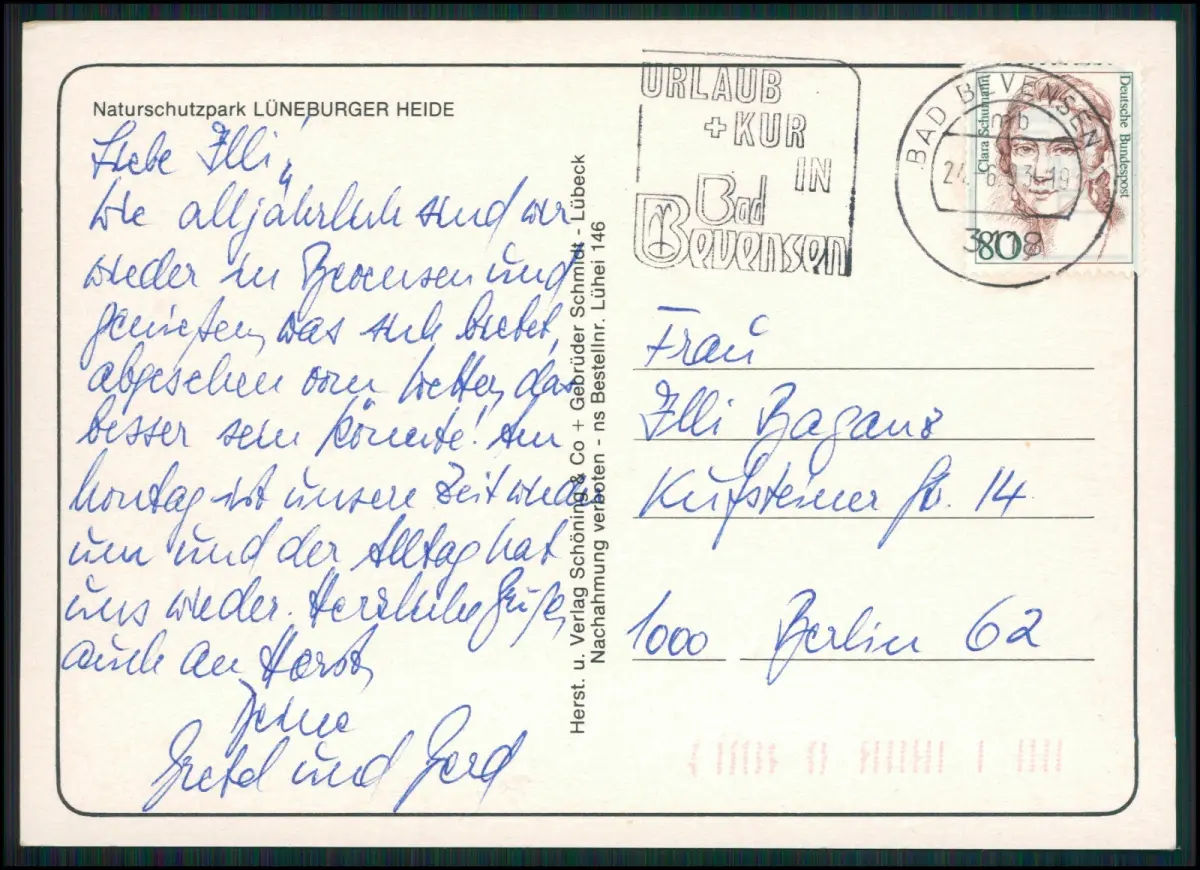 Naturschutzpark LÜNEBURGER HEIDE
Liebe Illi,
Wie alljährlich sind wir
wieder in Bevensen und
genießen, was sich bietet,
abgesehen vom Wetter, das
besser sein könnte! Am
Montag ist unsere Zeit wieder
um und der Alltag hat
uns wieder. Herzliche Grüße,
auch an Horst,
Deine
Gretel und Gerd
Herst. u. Verlag Schöning & Co + Gebrüder Schmidt - Lübeck
Nachahmung verboten - ns Bestellnr. Lühei 146
URLAUB
+ KUR
IN
Bad
Bevensen
BAD BEVENSEN
mb
24.6.93-19
3118
Clara Schumann
Deutsche Bundespost
80
Frau
Illi Baganz
Kufsteiner Str. 14
1000 Berlin 62